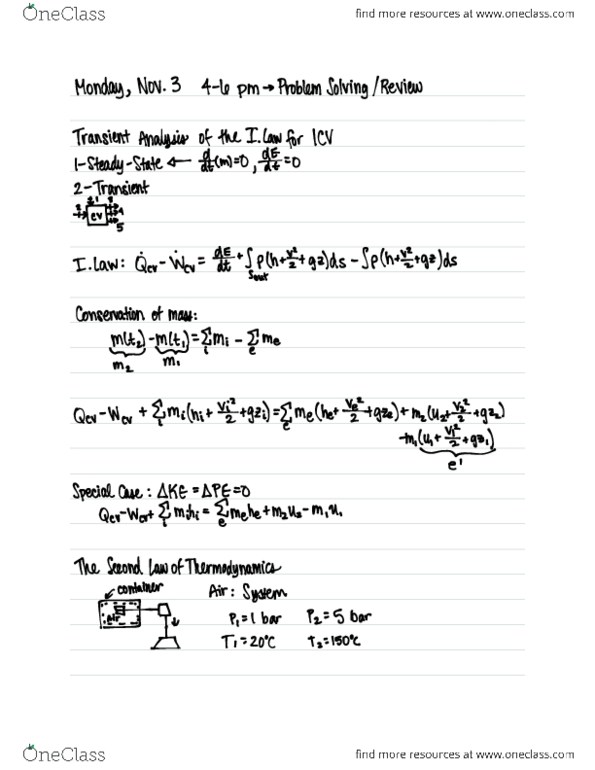 OneClass find more resources at www.oneclass.com
Monday, Nov. 3 4-6 pm → Problem Solving / Review
Transient Analysis of the I. Law for 1CV
1-Steady-State ← d/dt(m)=0, dE/dt=0
2-Transient
cv
5
I. Law: Q̇cv - Ẇcv = dE/dt + ∫Sout ρ(h+v²/2+gz)ds - ∫ρ(h+v²/2+gz)ds
Conservation of mass:
m(t₂)-m(t₁)=Σi mi - Σe me
m₂ m₁
Qcv-Wcv + Σi mi(hi+Vi²/2+gzi)=Σe me(he+Ve²/2+gze)+m₂(u₂+V₂²/2+gz₂)
-m₁(u₁+V₁²/2+gz₁)
e'
Special Case: ΔKE=ΔPE=0
Qcv-Wcv+Σi mihi = Σe mehe+m₂u₂-m₁u₁
The Second Law of Thermodynamics
container Air: System
air P₁=1 bar P₂=5 bar
T₁=20°C T₂=150°C
OneClass find more resources at www.oneclass.com